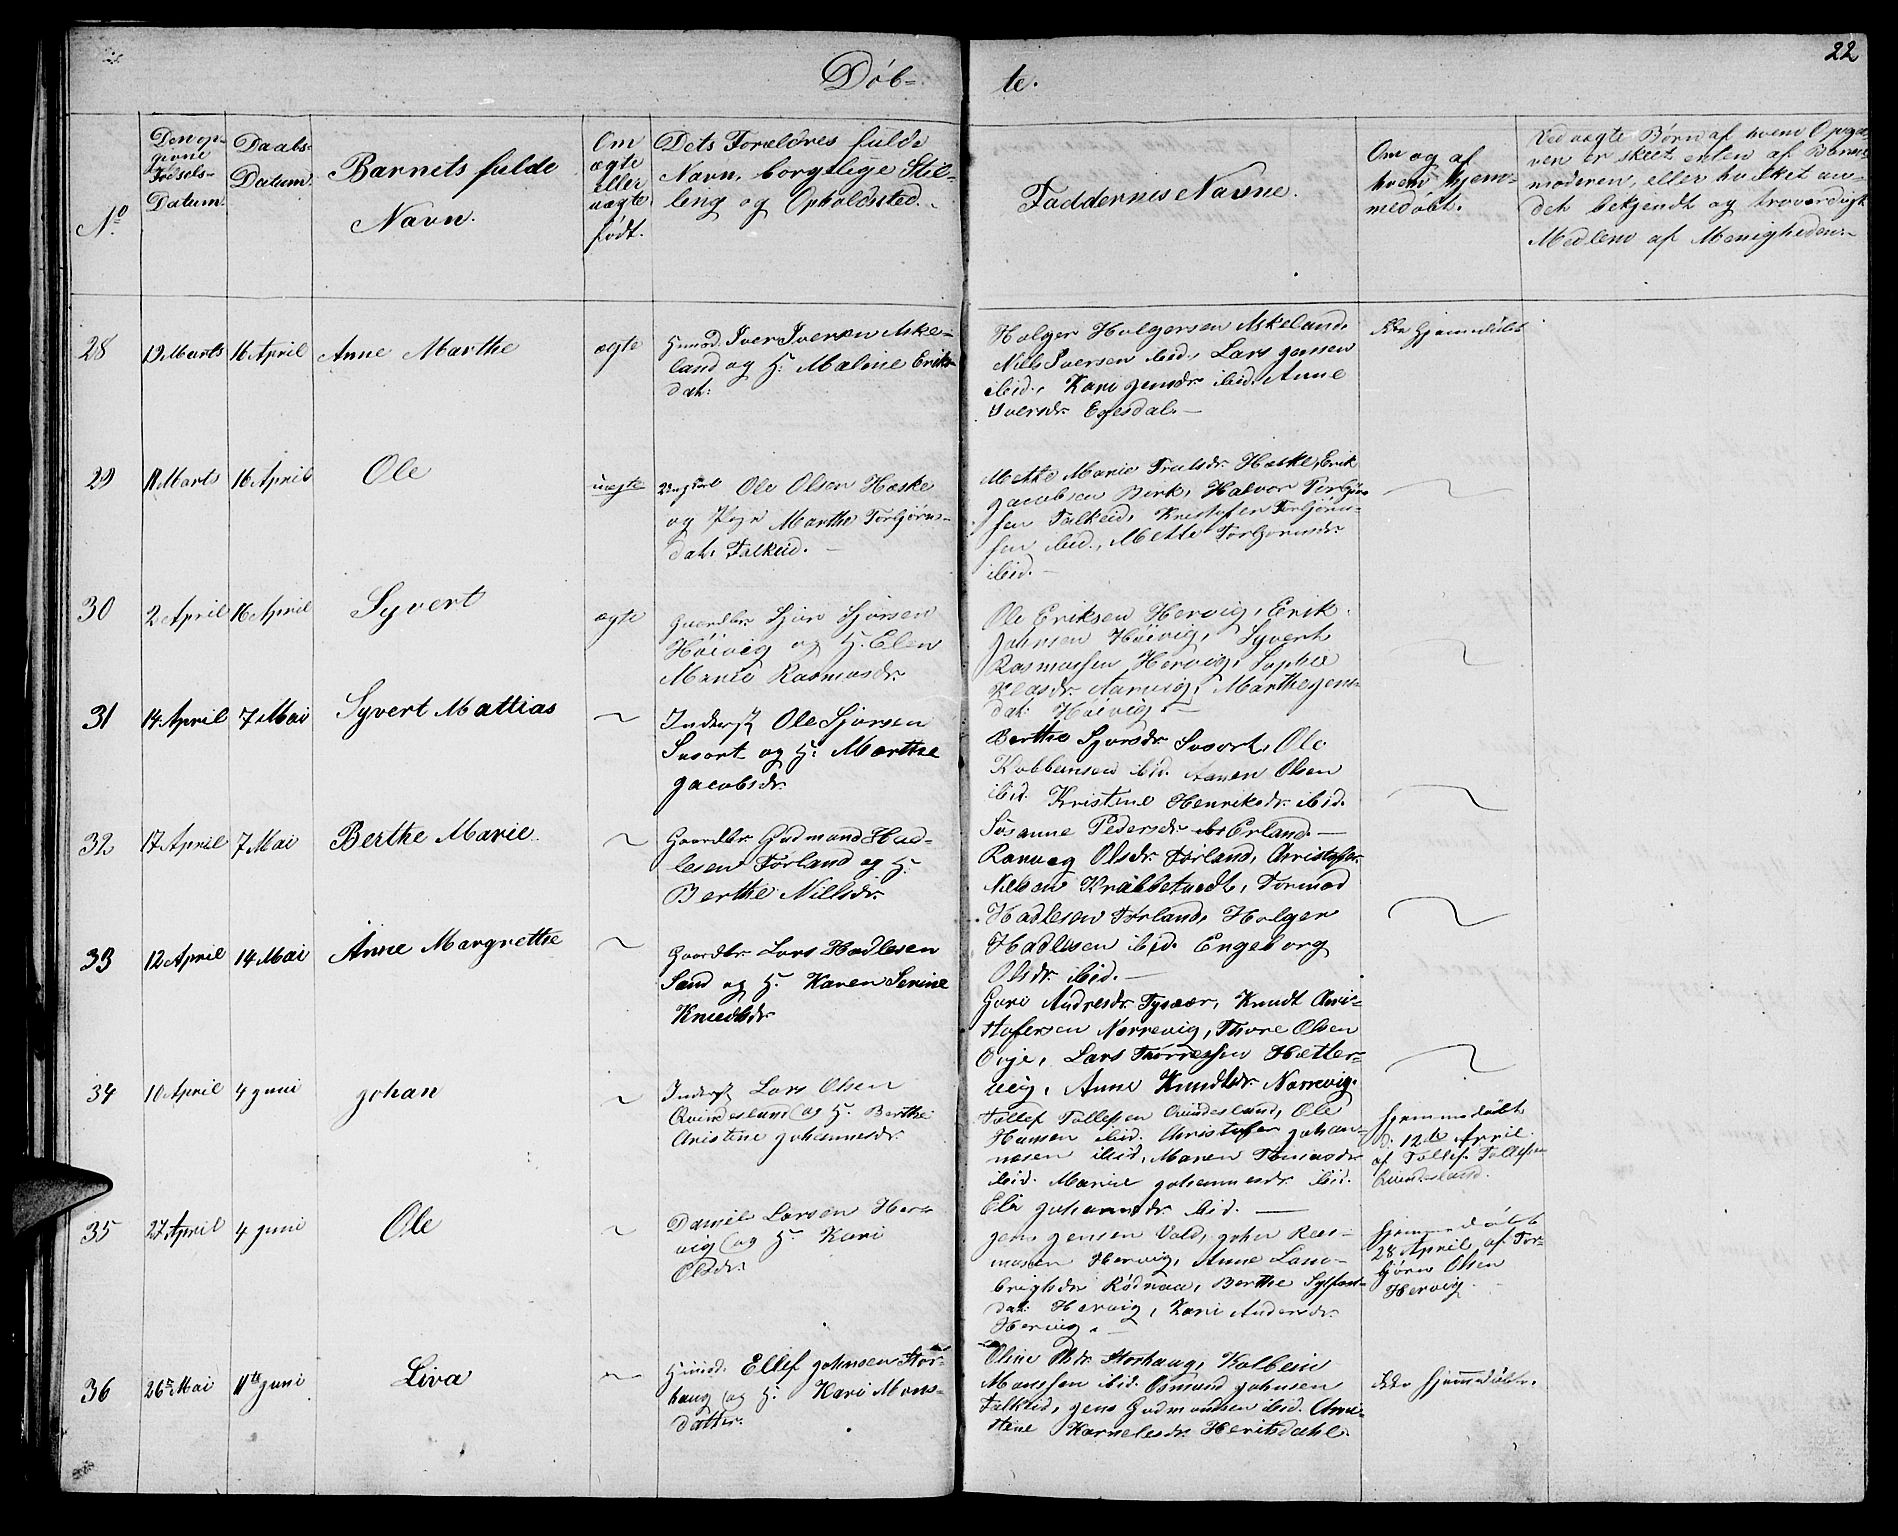 22
Döb- te.
No
Den op-
givne
Födsels-
Datum.
Daabs-
Datum.
Barnets fulde
Navn.
Om
ægte
eller
uægte
födt.
Dets Forældres fulde
Navn, borgelige Stil-
ling og Opholdsted.
Faddernes Navne.
Om og af
hvem hjem-
medöbt.
Ved uægte Börn af hvem Opga-
ven er skeet, enten af Barne-
moderen, eller hvilket an-
det bekjendt og troværdigt
Medlem af Menigheden.
28 19 Marts 16 April Anne Marthe ægte
Huusmd. Iver Iversen Aske-
land og H. Maline Eriks-
dat:
Holger Holgersen Askeland,
Niels Iversen ibid., Lars Jensen
ibid., Kari Jensdr. ibid. Anne
Iversdr. Egesdal.
Ikke hjemmedöbt
29 11 Marts 16 April Ole uægte
Ungkarl Ole Olsen Haske
og Pige Marthe Torbjörns-
dat. Falkeid.
Mette Marie Trulsdr. Haske, Erik
Jacobsen Birk, Halvor Torbjörn-
sen Falkeid, Kristofer Torbjörn-
sen ibid., Mette Torbjörnsdr.
ibid.
30 2 April 16 April Syvert ægte
Gaardbr. Sjur Sjursen
Höivig og H. Elen
Marie Rasmusdr.
Ole Eriksen Hervig, Erik
Johnsen Höivig, Syvert
Rasmussen Hervig, Sophie
Klasdr. Aarvig, Marthe Jens-
dat: Höivig.
31 14 April 7 Mai Syvert Mattias
Inderst Ole Sjursen
Svsort og H. Marthe
Jacobsdr.
Berthe Sjursdr. Svsort, Ole
Kolbensen ibid. Aanen Olsen
ibid. Kristine Henriksdr. ibid.
Susanne Pedersdr. Erland.
32 17 April 7 Mai Berthe Marie
Gaardbr. Gudmund Had-
lesen Förland og H.
Berthe Nillsdr.
Ranveg Olsdr. Förland, Christofer
Nilsen Krabbetvedt, Tormod
Hadlesen Förland, Holger
Hadlesen ibid. Engeborg
Olsdr. ibid.
33 12 April 14 Mai Anne Margrethe
Gaardbr. Lars Hadlesen
Sand og H. Karen Serine
Knudtsdr.
Guri Andresdr. Tysvær, Knudt Chris-
tofersen Norrevig, Thore Olsen
Öije, Lars Torressen Hetter-
vig, Anne Knudtsdr. Norrevig.
34 10 April 4 Juni Johan
Inderst Lars Olsen
Qvindesland og H. Berthe
Christine Johannesdr.
Tollef Tollefsen Qvindesland, Ole
Hansen ibid. Christofer Johan-
nesen ibid, Maren Tomasdr.
ibid. Marie Johannesdr. ibid.
Eli Johannsdr. ibid.
Hjemmedöbt
d. 12te April
af Tollef Tollefsen
Qvindesland.
35 27 April 4 Juni Ole
Daniel Larsen Her-
vig og H. Kari
Olsdr.
Jens Jensen Vald, John Ras-
musen Hervig, Anne Lam-
brigtsdr. Rödnaa, Berthe Syvert-
dat: Hervig, Kari Andersdr.
Hervig.
Hjemmedöbt
28 April af Tor-
björn Olsen
Hervig
36 26 Mai 11te Juni Liva
Huusmd. Ellef Johnsen Stor-
haug og H. Kari Mons-
datter.
Oline Storhaug, Kolbein
Monssen ibid. Osmund Johnsen
Falkeid, Jens Gudmundsen ibid. Chri-
stine Karnelesdr. Heritsdahl.
Ikke hjemmedöbt.